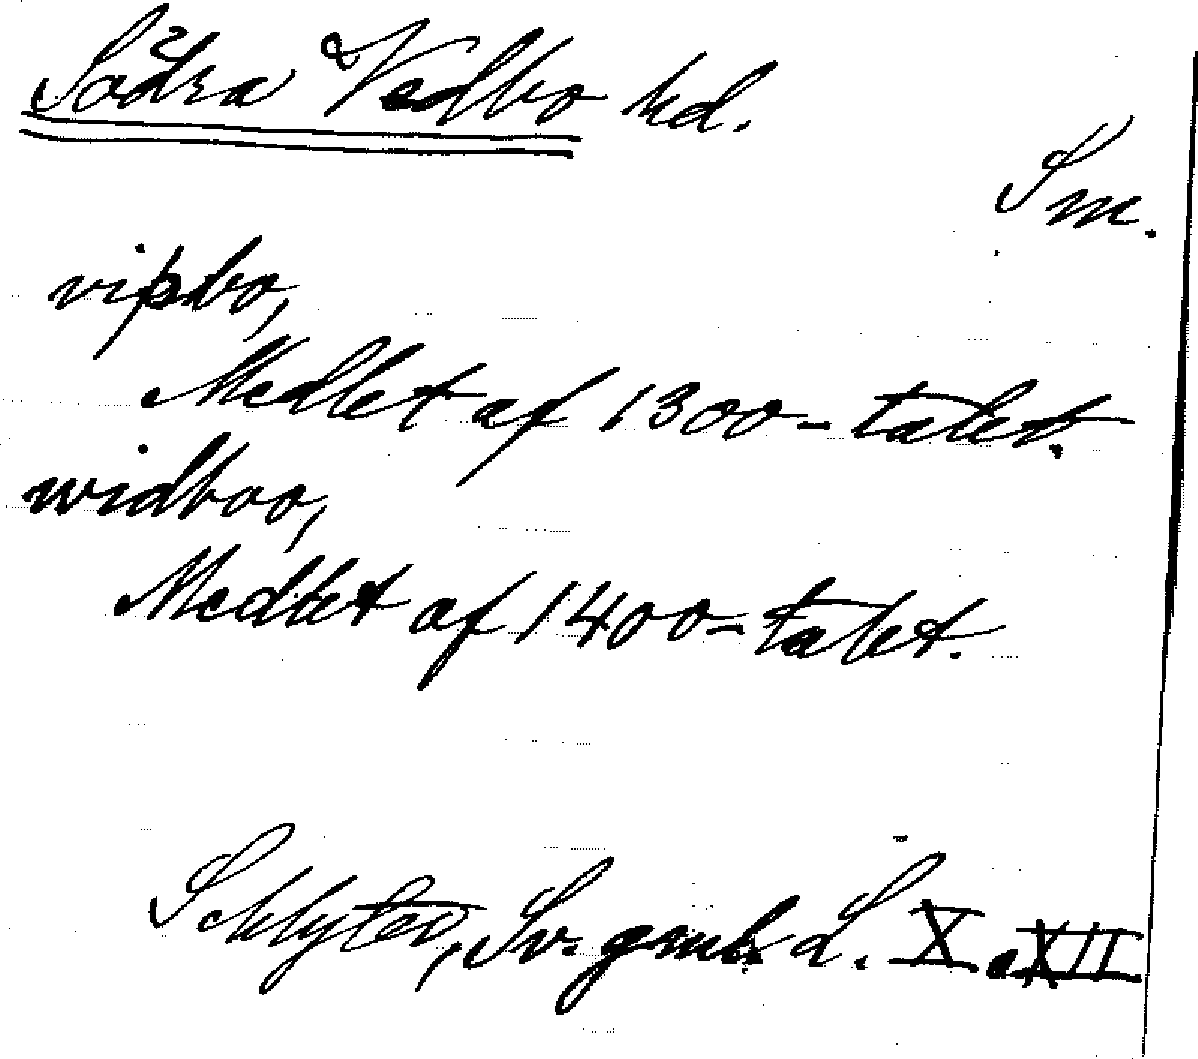 Södra Vedbo hd.
Sm.
viþbo,
Medlet af 1300-talet.
widboo,
Medlet af 1400-talet.
Schlyter, Sv. gml. L. X. XII